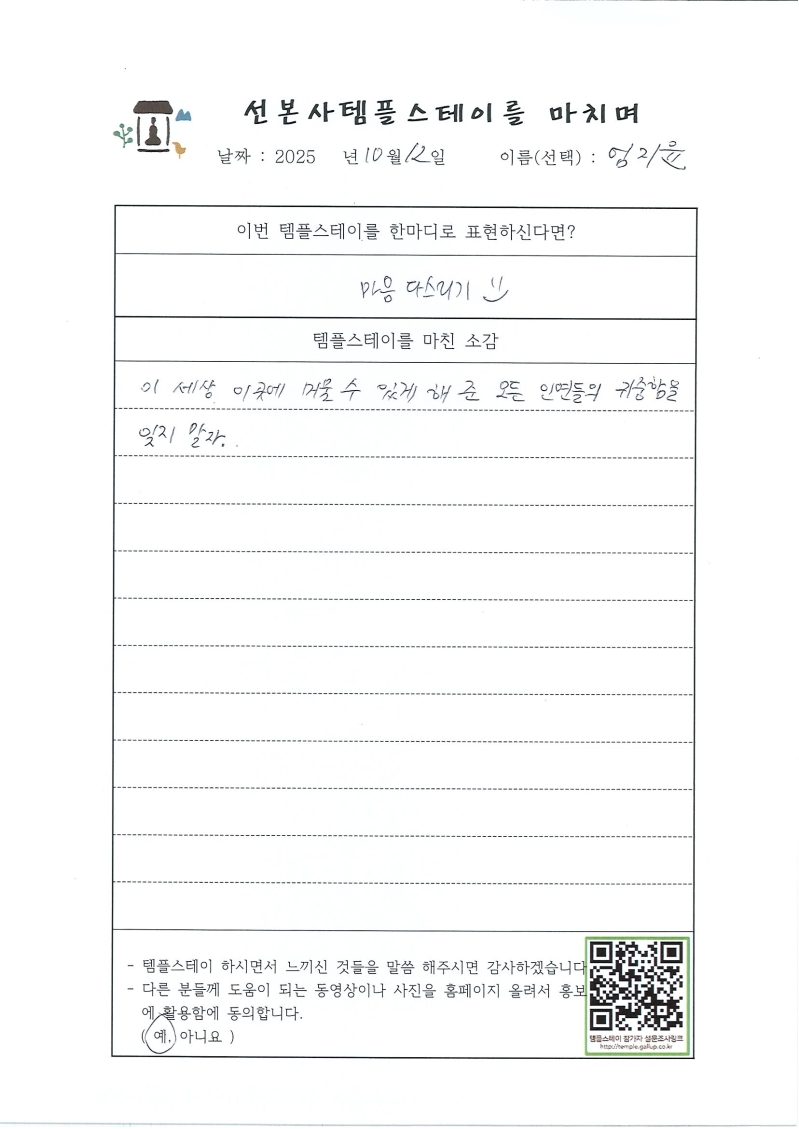 선본사템플스테이를 마치며
날짜 : 2025 년 10월 12일 이름(선택) : 엄지윤
이번 템플스테이를 한마디로 표현하신다면?
마음 다스리기
템플스테이를 마친 소감
이 세상 이곳에 머물 수 있게 해 준 모든 인연들의 귀중함을
잊지 말자.
- 템플스테이 하시면서 느끼신 것들을 말씀 해주시면 감사하겠습니다
- 다른 분들께 도움이 되는 동영상이나 사진을 홈페이지 올려서 홍보
에 활용함에 동의합니다.
( 예, 아니요 )
템플스테이 참가자 설문조사링크
http://temple.gallup.co.kr